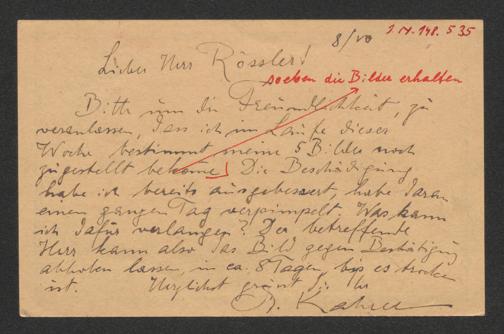 I.N. 148.535
8/VII
Lieber Herr Rössler!
soeben die Bilder erhalten
Bitte um die Freundlichkeit, zu
veranlassen, dass ich im Laufe dieser
Woche bestimmt meine 5 Bilder noch
zugestellt bekome! Die Beschädigung
habe ich bereits ausgebessert, habe daran
einen ganzen Tag verpimpelt. Was kann
ich dafür verlangen? Der betreffende
Herr kann also das Bild gegen Bestätigung
abholen lassen, in ca. 8 Tagen, bis es trocken
ist. Herzlichst grüsst Sie Ihr